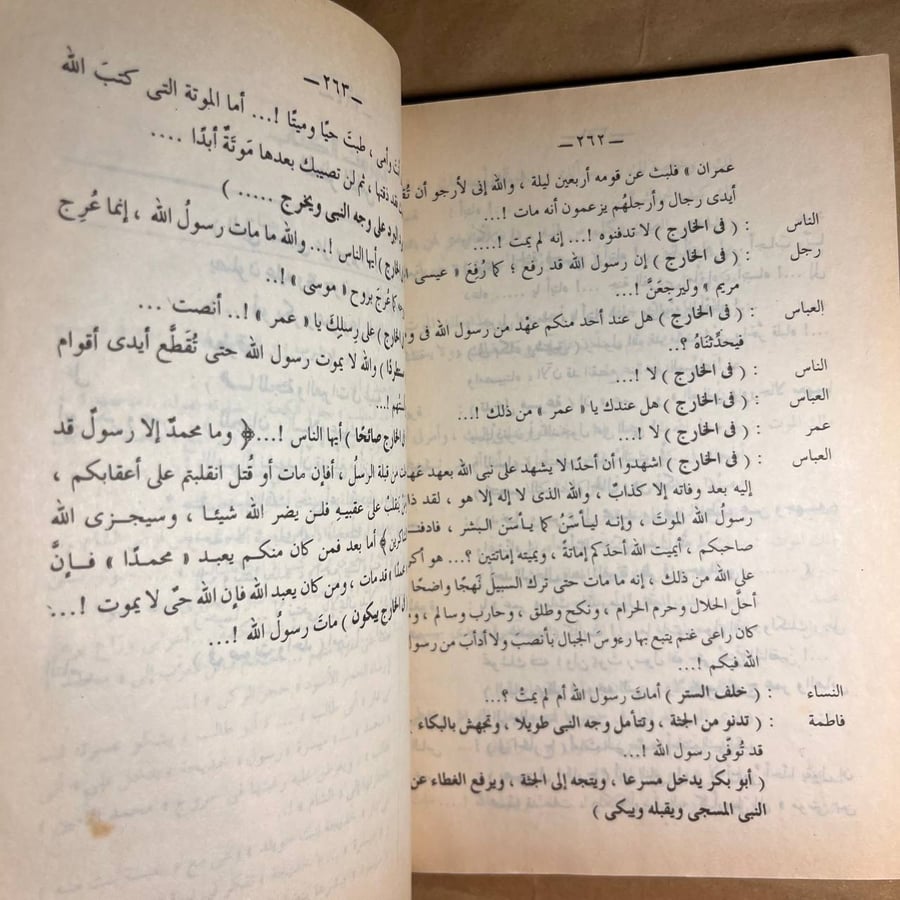 — ٢٦٢ —
عمران » فلبث عن قومه أربعين ليلة ، والله إنى لأرجو أن
أيدى رجال وأرجلهُم يزعمون أنه مات !...
الناس : ( فى الخارج ) لا تدفنوه !... إنه لم يمت !...
رجل : ( فى الخارج ) إن رسول الله قد رفع ؛ كما رُفعَ « عيسى
مريم » وليرجعُنَّ !...
العباس : ( فى الخارج ) هل عند أحد منكم عهْد من رسول الله فى
فيحدِّثنَاهُ ؟..
الناس : ( فى الخارج ) لا !...
العباس : ( فى الخارج ) هل عندك يا « عمر » من ذلك !...
عمر : ( فى الخارج ) لا !...
العباس : ( فى الخارج ) اشهدوا أن أحدًا لا يشهد على نبى الله بعهد
إليه بعد وفاته إلا كذابٌ ، والله الذى لا إله إلا هو ، لقد
رسولُ الله الموتَ ، وإنه ليأسَنُ كما يأسَنُ البشر ،
صاحبكم ، أيميت الله أحدَكم إماتةً ، ويميته إماتتين ؟... هو
على الله من ذلك ، إنه ما مات حتى ترك السبيلَ نَهجًا واضحًا
أحلَّ الحلال وحرم الحرام ، ونكح وطلق ، وحارب وسالم ،
كان راعى غنم يتبع بها رءوسَ الجبال بأنصبَ ولا أدأبَ من
الله فيكم !...
النساء : ( خلف الستر ) أماتَ رسول الله أم لم يمتْ ؟...
فاطمة : ( تدنو من الجثة ، وتتأمل وجه النبى طويلا ، وتجهش بالبكاء )
قد تُوفّى رسول الله !...
( أبو بكر يدخل مسرعا ، ويتجه إلى الجثة ، ويرفع الغطاء عن
النبى المسجى ويقبله ويبكى )
— ٢٦٣ —
وأمى ، طبتَ حيًا وميتًا !... أما الموتة التى كتبَ الله
ذقتها ، ثم لن تصيبك بعدها مَوتَةٌ أبدًا ....
على وجه النبى ويخرج ..... )
أيها الناس !... والله ما مات رسولُ الله ، إنما عُرِج
كما عُرجَ بروح « موسى » !..
على رِسلِكَ يا « عمر » !.. أنصت ...
والله لا يموت رسول الله حتى تُقَطَّع أيدى أقوام
صائحًا ) أيها الناس !... ﴿ وما محمدٌ إلا رسولٌ قد
من قبله الرسلُ ، أفإن مات أو قُتل انقلبتم على أعقابكم ،
على عقبيهِ فلن يضر الله شيئا ، وسيجزى الله
﴾ أما بعد فمن كان منكم يعبد « محمدًا » فإنَّ
قد مات ، ومن كان يعبد الله فإن الله حىّ لا يموت !...
الخارج يبكون ) ماتَ رسولُ الله !...